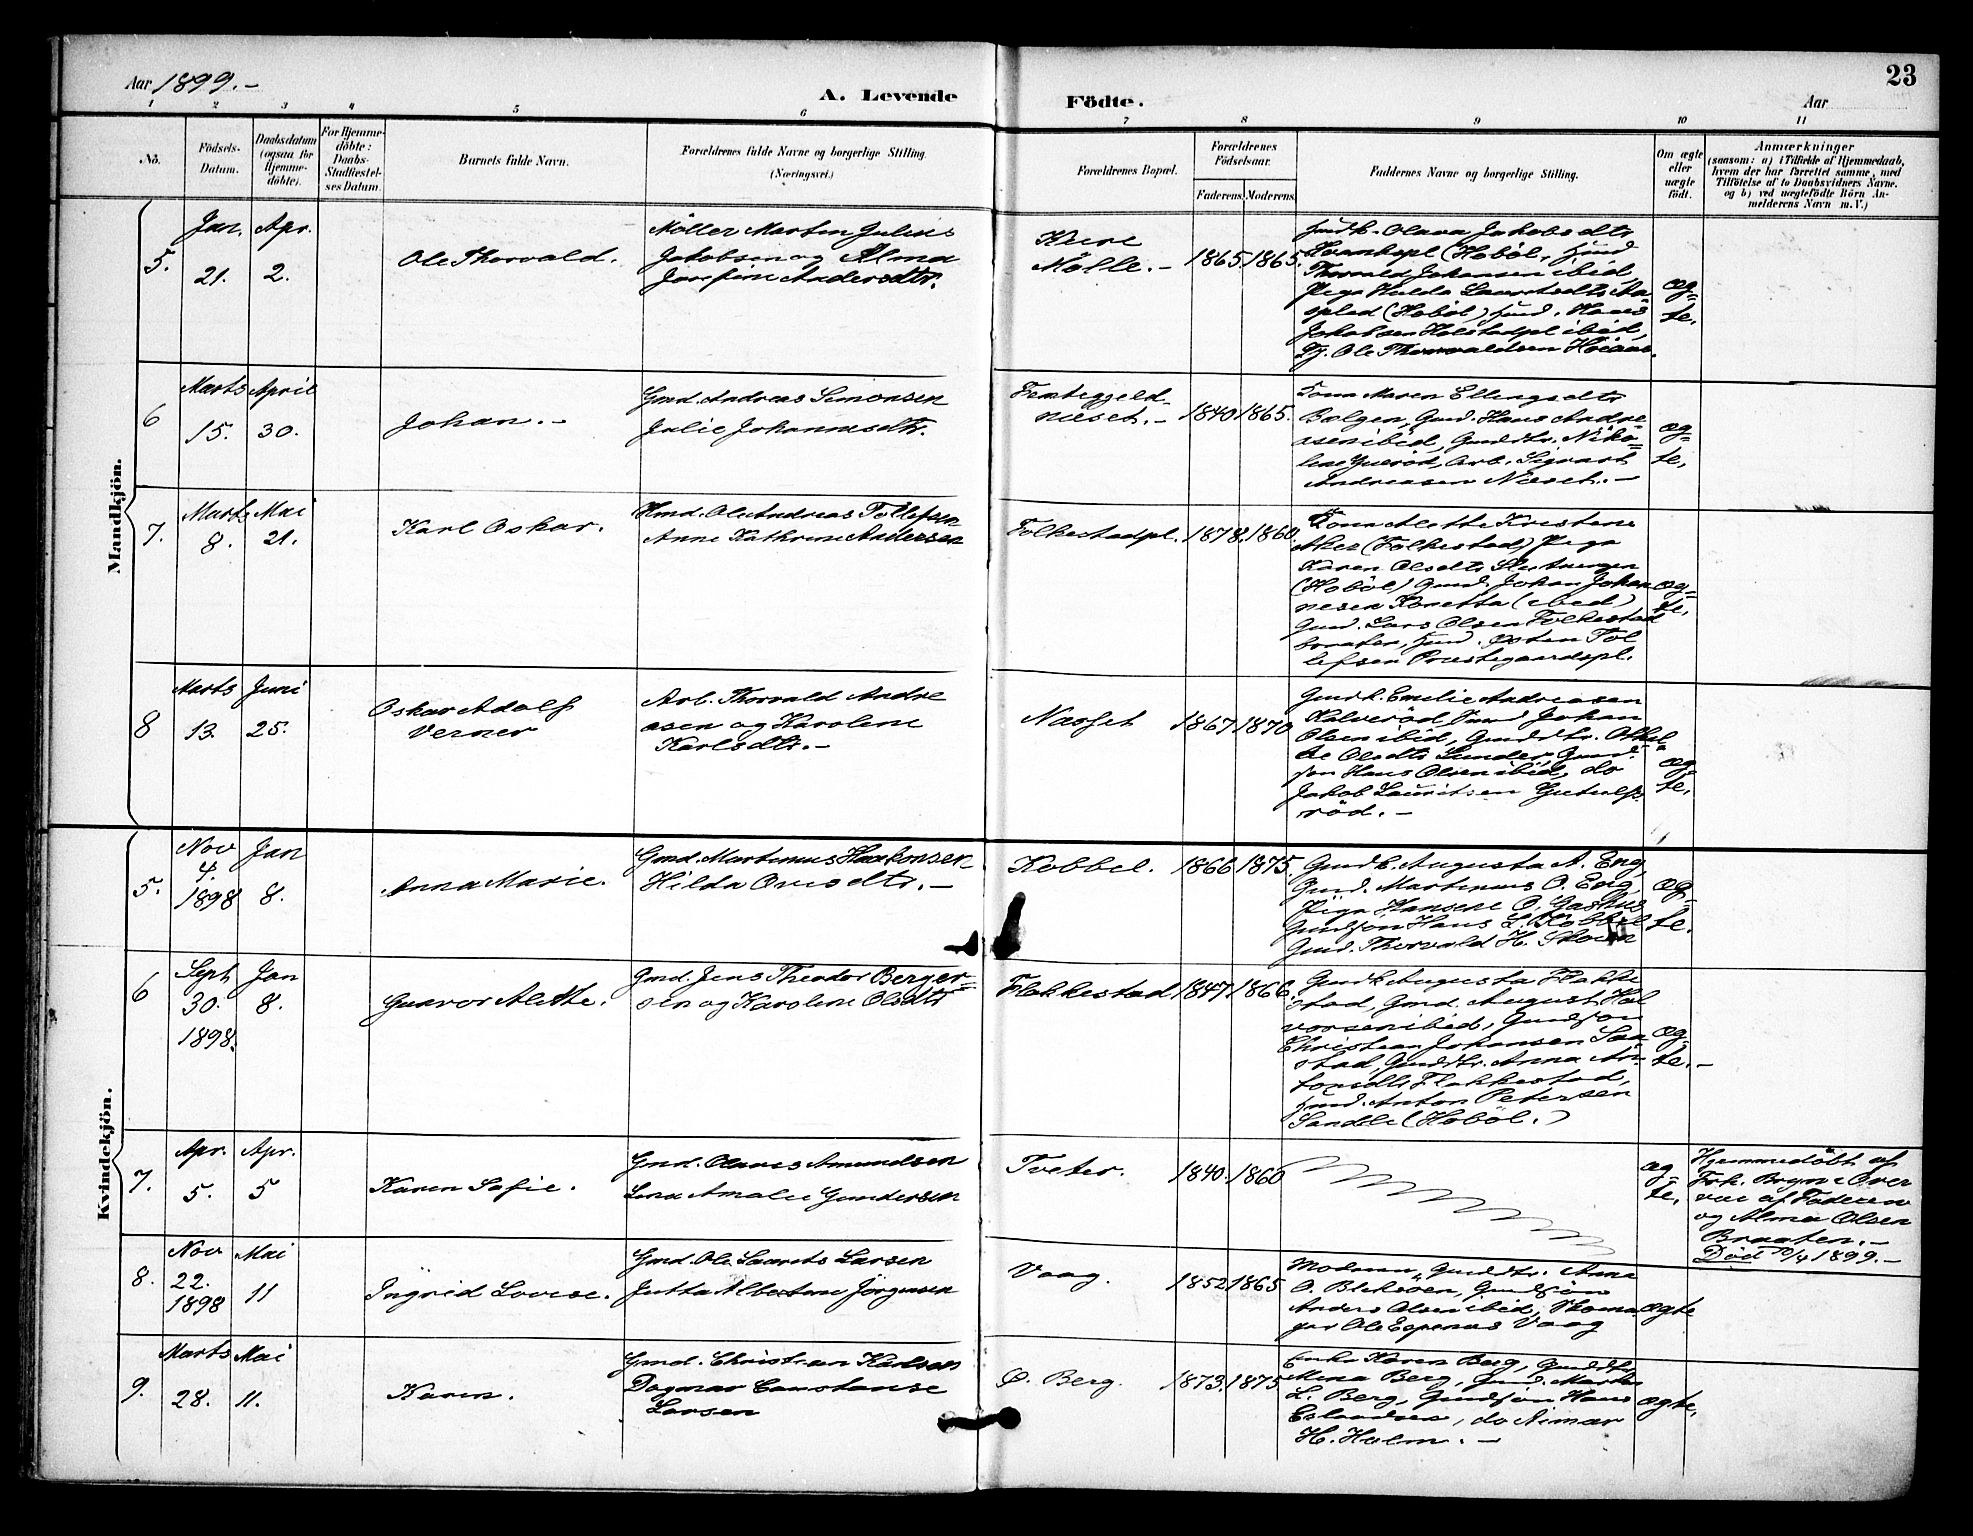 Aar 1899.-
A. Levende
Födte.
Aar
23
1 2 3 4 5 6 7 8 9 10 11
No.
Födsels-
Datum.
Daabsdatum
(ogsaa for
Hjemme-
döbte).
For Hjemme-
döbte:
Daabs-
Stadfæstel-
ses Datum.
Barnets fulde Navn.
Forældrenes fulde Navne og borgerlige Stilling.
(Næringsvei.)
Forældrenes Bopæl.
Forældrenes
Födselsaar.
Faderens. Moderens.
Faddernes Navne og borgerlige Stilling.
Om ægte
eller
uægte
født.
Anmærkninger
(saasom: a) i Tilfælde af Hjemmedaab,
hvem der har forrettet samme, med
Tilföielse af to Daabsvidners Navne.
og b) ved uægtefödte Börn An-
melderens Navn m. V.)
Mandkjön.
5.
Jan.
21.
Apr.
2.
Ole Thorvald.
Möller Martin Julius
Jakobsen og Alma
Josefine Andersdtr.
Kure
Mölle.-
1865. 1865.
Gmdk. Olava Jakobsdtr
(Hoböl,
Thorvald Johansen ibid,
Pige Hulda Lauritsdtr
(Hoböl) Hans
Jakobsen ibid,
Tj. Ole Thorvaldsen
æg=
te.
6
Marts
15.
April
30.
Johan.-
Gmd. Andreas Simonsen
Julie Johannesdtr.
næset.-
1840 1865.
Kona Maren Ellingsdtr
Bolgen, Gmd. Hans Andre=
asen ibid, Gmddtr. Niko=
line Arb. Sigvart
Andreasen Næset.-
æg=
te,
7.
Marts
8.
Mai
21.
Karl Oskar.
Hmd. Ole Andreas Tollefsen
Anne Kathrine Andersen
Folkestadpl.
1878. 1860.
Kona Alette Kristine
Aker (Folkestad) Pige
Karen Olsdtr
(Hoböl) Gmd. Johan Johan
nesen (ibid)
Gmd. Lars Olsen Folkestad
Hmd. Osten Tol
lefsen Prestegaardspl.
æg=
te,
8
Marts
13.
Juni
25.
Oskar Adolf
Verner
Arb. Thorvald Andre
asen og Karoline
Karlsdtr.-
Næsset
1867. 1870
Gmdk. Emilie Andreasen
Kalveröd, Johan
Olsen ibid, Gmddtr.
Olsdtr Sunder, Gmd.
søn Hans Olsen ibid, do
Jakob Lauritsen
röd.-
æg
te,
Kvindekjön.
5.
Nov
4.
1898
Jan
8.
Anna Marie.
Gmd. Martinus Haakonsen
Hilda Ovesdtr.-
Kobbel.
1866 1875.
Gmdk. Augusta A. Eng,
Gmd. Martinus O. Eng,
Pige Hansine O.
Gmdsøn Hans L. Kobbel
Gmd. Thorvald H. Skoven
æg=
te.
6
Sept
30.
1898.
Jan
8.
Gunvor Alette.
Gmd. Jens Theodor Berger=
sen og Karoline Olsdtr
Flakkestad
1847. 1866.
Gmdk Augusta Flakke
stad, Gmd. August Hal
vorsen ibid, Gmdsøn
Christian Johansen Saa=
stad, Gmddtr. Anna An=
tonsdtr Flakkestad,
Hmd. Anton Petersen
Sandli (Hoböl.)
æg=
te.-
7.
Apr.
5.
Apr.
5
Karen Sofie.
Gmd. Olaves Amundsen
Lina Amalie Gundersen
Tveter.
1840. 1860
æg=
te,
Hjemmedöbt af
Frk. Brynie Over
vær af Faderen
og Alma Olsen
Braaten.-
Död 10/4 1899.-
8.
Nov
22.
1898
Mai
11
Ingrid Lovise.
Gmd. Ole Laurits Larsen
Jutta Albertine Jörgensen
Vaag.
1852 1865
Moderen, Gmddtr. Anna
O. Gmdsøn
Anders Olsen ibid,
Ole Espenæs Vaag
ægte
9.
Marts
28.
Mai
11.
Karen.
Gmd. Christian Karlsen
Dagmar Constanse
Larsen
Ö. Berg.
1873. 1875
Enke Karen Berg, Gmddtr
Mina Berg, Gmd. Martin
L. Berg, Gmdsøn Hans
do Aimar
H. Holm.-
ægte,